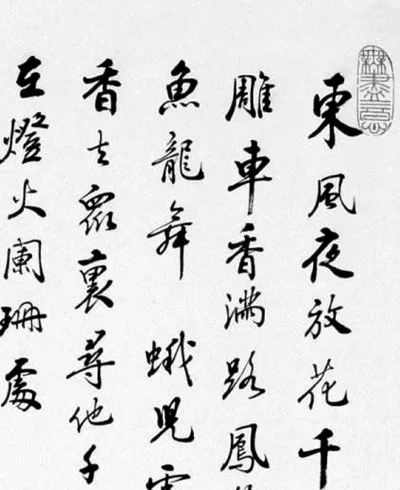 東風夜放花千
雕車香滿路鳳
魚龍舞蛾兒
香去眾裏尋他千
在燈火闌珊處